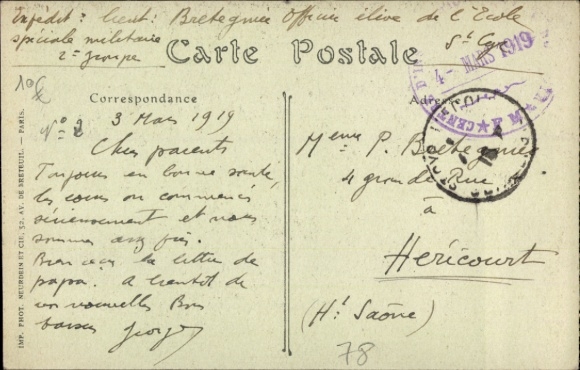 Expédit: Lieut: Bretegnier Officier élève de l'Ecole
spéciale militaire St Cyr
2e groupe
Carte Postale
4 - MARS 1919
Correspondance
Adresse
No 2
3 Mars 1919
Chers parents
Toujours en bonne santé,
les cours ont commencé
sérieusement et nous
sommes pris.
Bien reçu la lettre de
papa. A bientôt de
vos nouvelles Bons
baisers Georges
Mme P. Bretegnier
4 grande Rue
à
Héricourt
(Hte Saône)
78
IMP. PHOT. NEURDEIN ET CIE, 52, AV. DE BRETEUIL. — PARIS.